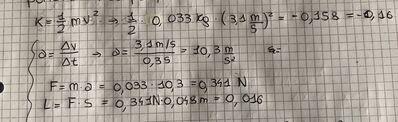 K = 1/2 m v² → 1/2 · 0,033 kg · (3,1 m/s)² = -0,158 = -0,16
a = Δv/Δt → a = 3,1 m/s / 0,3s = 10,3 m/s²
F = m · a = 0,033 · 10,3 = 0,341 N
L = F · s = 0,341N · 0,048 m = 0,016